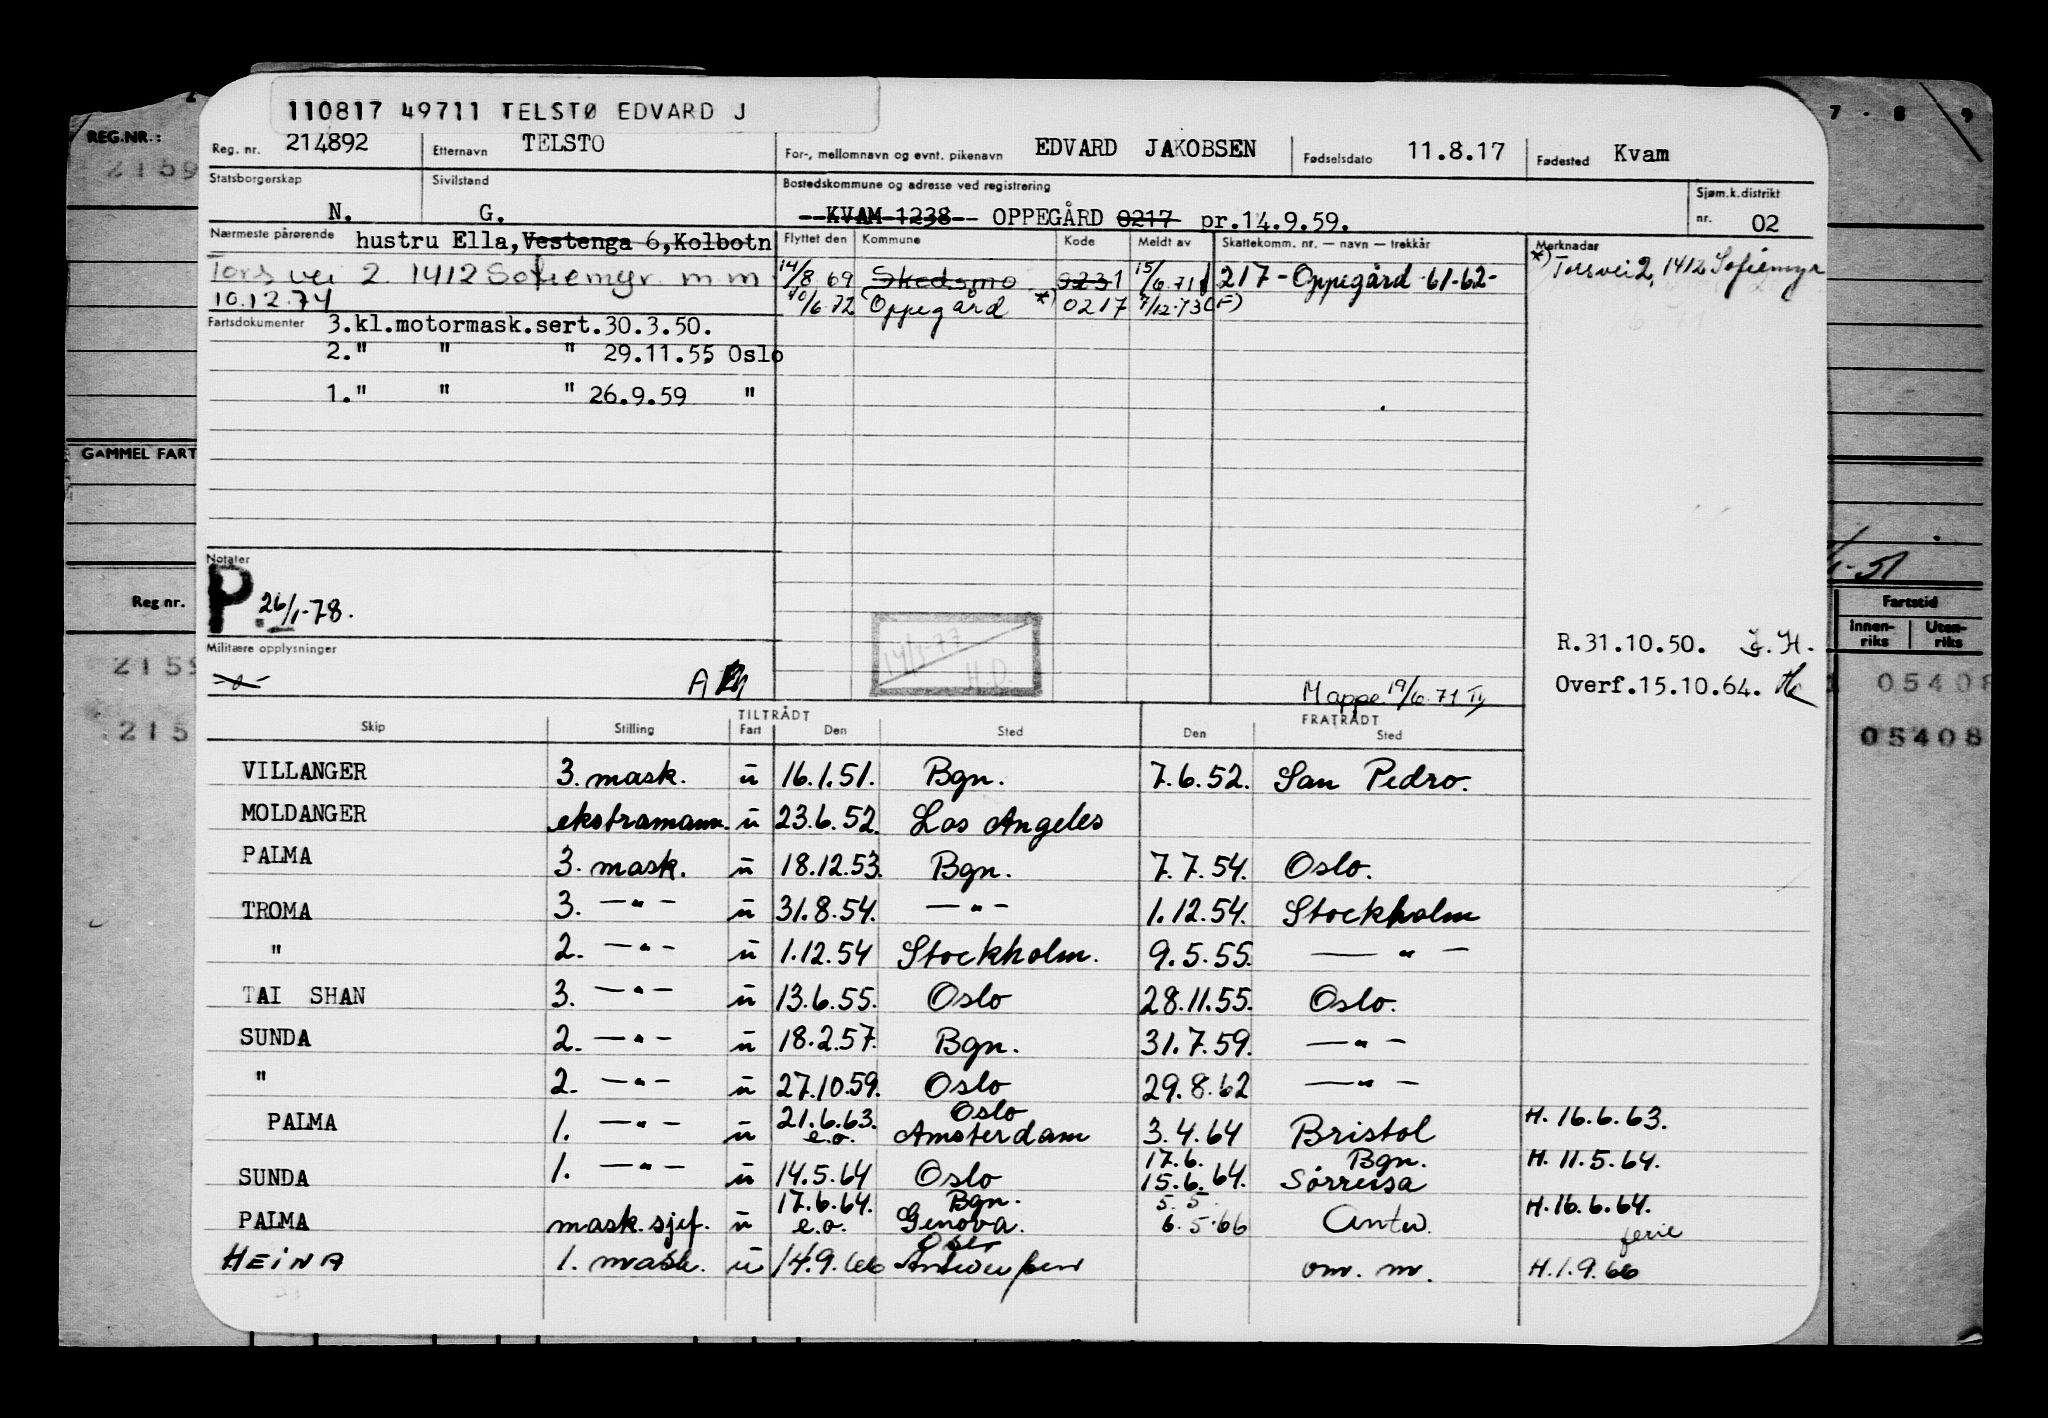 110817 49711 TELSTØ EDVARD J
REG.NR.:
2159
7 - 8 9
Reg. nr. 214892 Etternavn TELSTO For-, mellomnavn og evnt. pikenavn EDVARD JAKOBSEN Fødselsdato 11.8.17 Fødested Kvam
Statsborgerskap N. Sivilstand G. Bostedskommune og adresse ved registrering KVAM 1238 OPPEGÅRD 0217 pr.14.9.59. Sjøm.k.distrikt nr. 02
Nærmeste pårørende hustru Ella, Vestenga 6, Kolbotn
Tors vei 2. 1412 Sofiemyr. m m
10.12.74
Flyttet den Kommune Kode Meldt av Skattekomm. nr. — navn — trekkår Merknader
14/8 69 Skedsmo 0231 15/6.71 217 - Oppegård -61-62- *) Torsvei 2, 1412 Sofiemyr
10/6.72 Oppegård *) 0217 7/12-73 (F)
Fartsdokumenter 3.kl.motormask.sert.30.3.50.
2." " " 29.11.55 Oslo
1." " " 26.9.59 "
GAMMEL FART
Notater
P. 26/1-78.
Reg nr.
-51
Fartstid
Innen-riks Uten-riks
Militære opplysninger
-o-
A
14/7-77
H.O.
R.31.10.50. J.H.
Overf.15.10.64.
Mappe 19/6.71
2159
05408
215
05408
TILTRÅDT FRATRÅDT
Skip Stilling Fart Den Sted Den Sted
VILLANGER 3. mask. u 16.1.51. Bgn. 7.6.52. San Pedro.
MOLDANGER ekstramann. u 23.6.52. Los Angeles
PALMA 3. mask. u 18.12.53. Bgn. 7.7.54. Oslo.
TROMA 3. —"— u 31.8.54. —"— 1.12.54. Stockholm
" 2. —"— u 1.12.54 Stockholm. 9.5.55. —"—
TAI SHAN 3. —"— u 13.6.55. Oslo 28.11.55. Oslo.
SUNDA 2. —"— u 18.2.57. Bgn. 31.7.59. —"—
" 2. —"— u 27.10.59. Oslo 29.8.62 —"—
PALMA 1. —"— u 21.6.63. e.o. Oslo Amsterdam 3.4.64 Bristol H. 16.6.63.
SUNDA 1. —"— u 14.5.64 Oslo 17.6. 15.6.64. Bgn. Sørreisa H. 11.5.64.
PALMA mask.sjef. u 17.6.64. e.o. Bgn. Genova. 5.5. 6.5.66 Antw. H.16.6.64. ferie
HEINA 1. mask. u 14.9.66 Oslo Antwerpen om. m. H.1.9.66